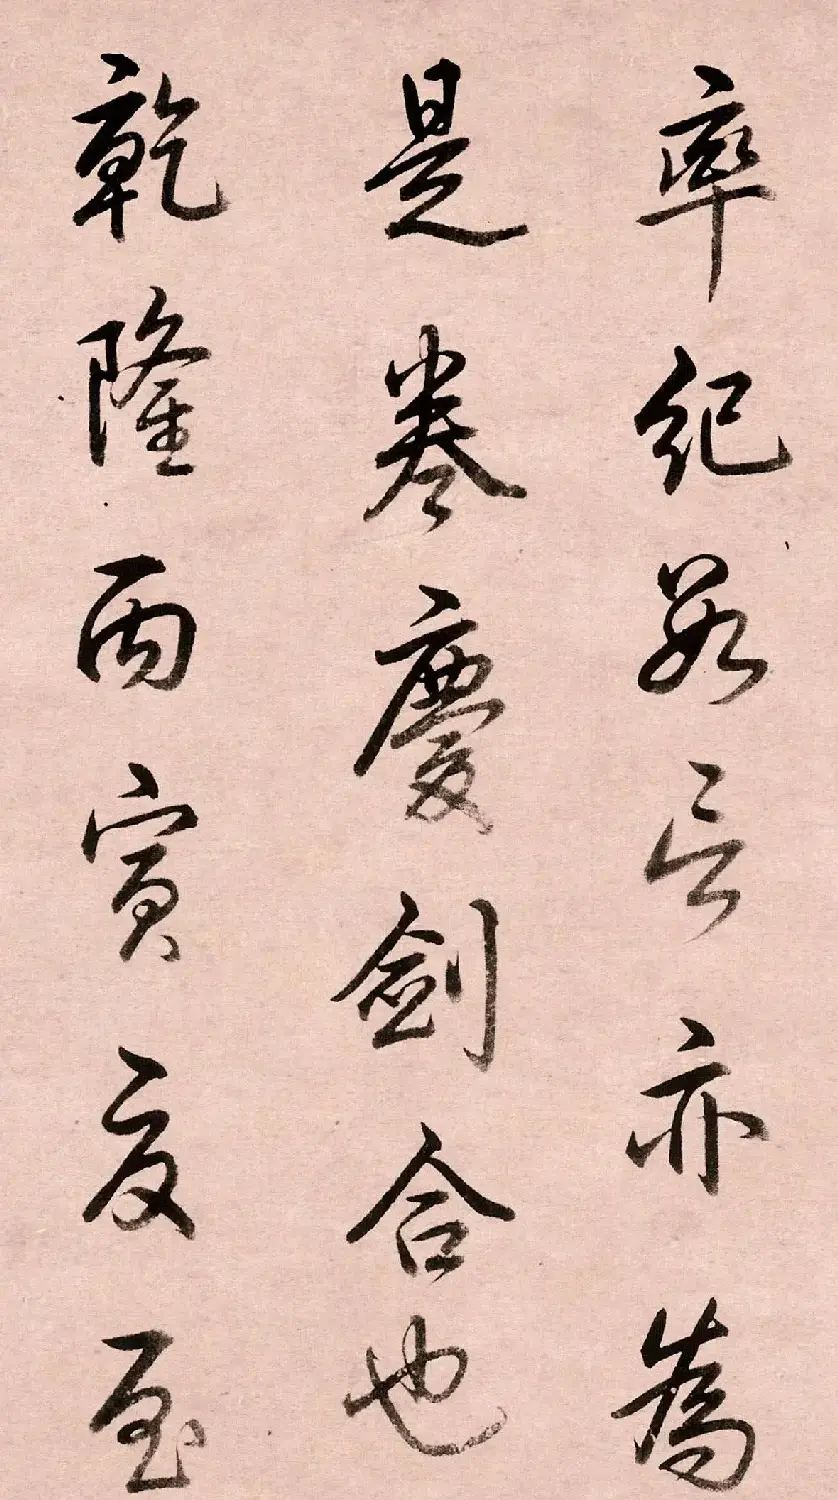 率紀數言亦為
是卷慶劍合也
乾隆丙寅夏至